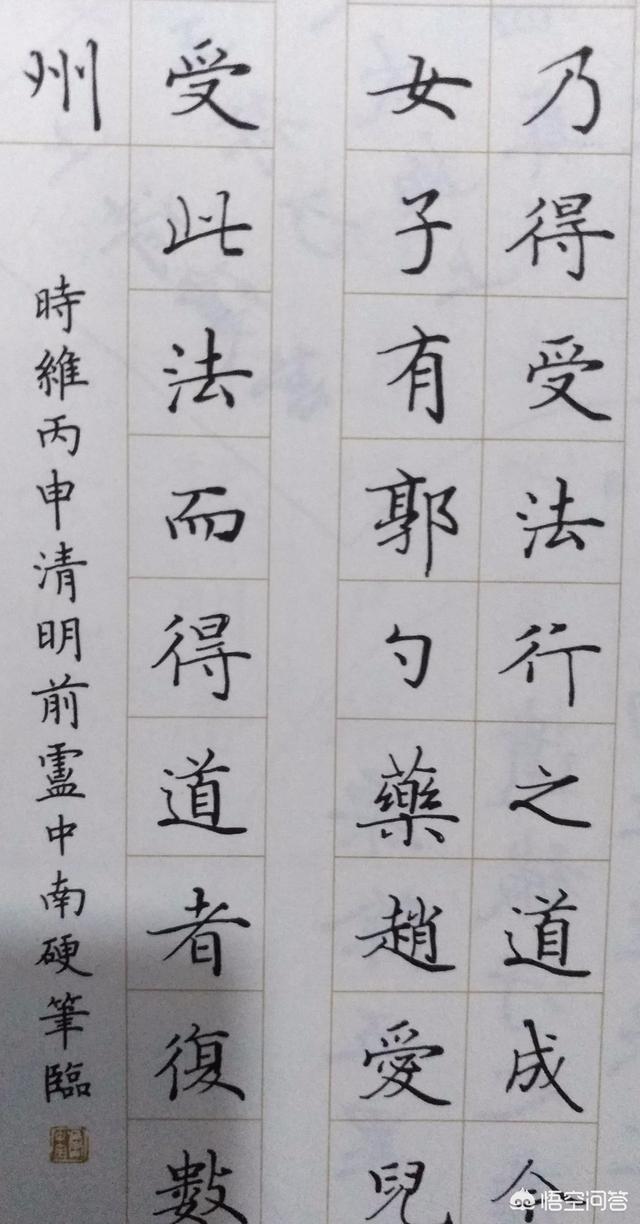 乃得受法行之道成今
女子有郭勺藥趙愛兒
受此法而得道者復數
州
時維丙申清明前盧中南硬筆臨
悟空问答